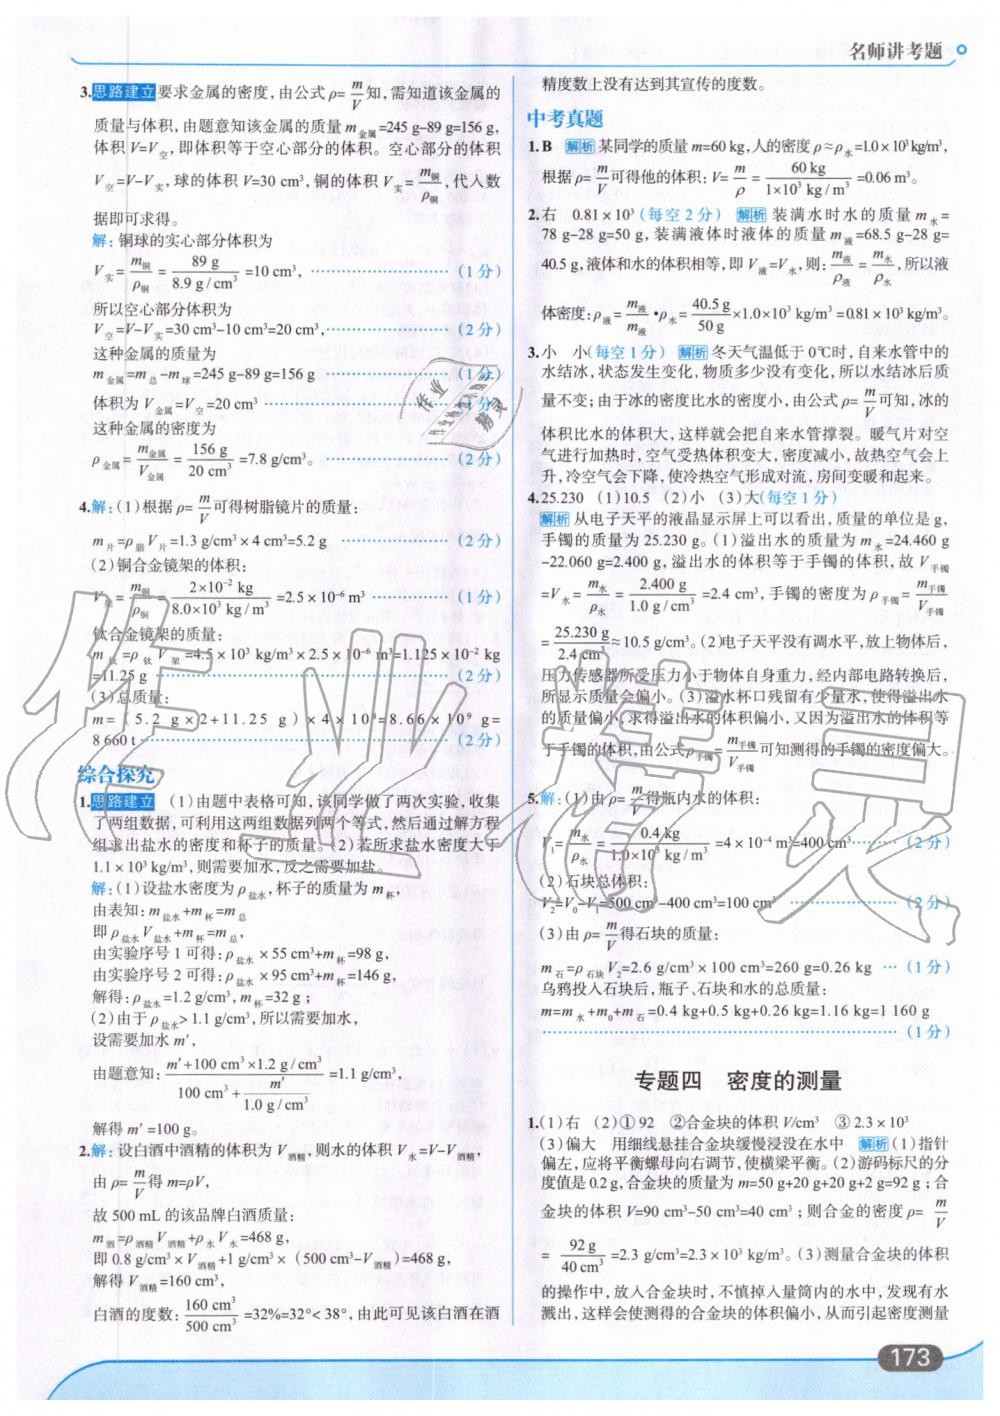 名师讲考题
3.思路建立 要求金属的密度,由公式 ρ=m/V知,需知道该金属的
质量与体积,由题意知该金属的质量 m金属=245 g-89 g=156 g,
体积 V=V空,即体积等于空心部分的体积。空心部分的体积
V空=V-V实,球的体积 V=30 cm³,铜的体积 V实=m铜/ρ铜,代入数
据即可求得。
解:铜球的实心部分体积为
V实=m铜/ρ铜=89 g/8.9 g/cm³=10 cm³,…………(1分)
所以空心部分体积为
V空=V-V实=30 cm³-10 cm³=20 cm³,…………(2分)
这种金属的质量为
m金属=m总-m球=245 g-89 g=156 g…………(1分)
体积为 V金属=V空=20 cm³…………(1分)
这种金属的密度为
ρ金属=m金属/V金属=156 g/20 cm³=7.8 g/cm³。…………(2分)
4.解:(1)根据 ρ=m/V可得树脂镜片的质量:
m片=ρ脂V片=1.3 g/cm³×4 cm³=5.2 g…………(2分)
(2)铜合金镜架的体积:
V架=m铜/ρ铜=2×10⁻² kg/8.0×10³ kg/m³=2.5×10⁻⁶ m³…………(1分)
钛合金镜架的质量:
m钛=ρ钛V架=4.5×10³ kg/m³×2.5×10⁻⁶ m³=1.125×10⁻² kg
=11.25 g…………(2分)
(3)总质量:
m=(5.2 g×2+11.25 g)×4×10⁸=8.66×10⁹ g=
8 660 t…………(2分)
综合探究
1.思路建立 (1)由题中表格可知,该同学做了两次实验,收集
了两组数据,可利用这两组数据列两个等式,然后通过解方程
组求出盐水的密度和杯子的质量。(2)若所求盐水密度大于
1.1×10³ kg/m³,则需要加水,反之需要加盐。
解:(1)设盐水密度为 ρ盐水,杯子的质量为 m杯,
由表知:m盐水+m杯=m总
即 ρ盐水V盐水+m杯=m总,
由实验序号 1 可得:ρ盐水×55 cm³+m杯=98 g,
由实验序号 2 可得:ρ盐水×95 cm³+m杯=146 g,
解得:ρ盐水=1.2 g/cm³,m杯=32 g;
(2)由于 ρ盐水>1.1 g/cm³,所以需要加水,
设需要加水 m′,
由题意知:m′+100 cm³×1.2 g/cm³/100 cm³+m′/1.0 g/cm³=1.1 g/cm³,
解得 m′=100 g。
2.解:设白酒中酒精的体积为 V酒精,则水的体积 V水=V-V酒精,
由 ρ=m/V得 m=ρV,
故 500 mL 的该品牌白酒质量:
m酒=ρ酒精V酒精+ρ水V水=468 g,
即 0.8 g/cm³×V酒精+1 g/cm³×(500 cm³-V酒精)=468 g,
解得 V酒精=160 cm³,
白酒的度数:160 cm³/500 cm³=32%=32°<38°,由此可见该白酒在酒
精度数上没有达到其宣传的度数。
中考真题
1.B 解析 某同学的质量 m=60 kg,人的密度 ρ≈ρ水=1.0×10³ kg/m³,
根据 ρ=m/V可得他的体积:V=m/ρ=60 kg/1×10³ kg/m³=0.06 m³。
2.右 0.81×10³(每空 2 分) 解析 装满水时水的质量 m水=
78 g-28 g=50 g,装满液体时液体的质量 m液=68.5 g-28 g=
40.5 g,液体和水的体积相等,即 V液=V水,则:m液/ρ液=m水/ρ水,所以液
体密度:ρ液=m液/m液·ρ水=40.5 g/50 g×1.0×10³ kg/m³=0.81×10³ kg/m³。
3.小 小(每空 1 分) 解析 冬天气温低于 0℃时,自来水管中的
水结冰,状态发生变化,物质多少没有变化,所以水结冰后质
量不变;由于冰的密度比水的密度小,由公式 ρ=m/V可知,冰的
体积比水的体积大,这样就会把自来水管撑裂。暖气片对空
气进行加热时,空气受热体积变大,密度减小,故热空气会上
升,冷空气会下降,使冷热空气形成对流,房间变暖和起来。
4.25.230 (1)10.5 (2)小 (3)大(每空 1 分)
解析 从电子天平的液晶显示屏上可以看出,质量的单位是 g,
手镯的质量为 25.230 g。(1)溢出水的质量为 m水=24.460 g
-22.060 g=2.400 g,溢出水的体积等于手镯的体积,故 V手镯
=V水=m水/ρ水=2.400 g/1.0 g/cm³=2.4 cm³,手镯的密度为 ρ手镯=m手镯/V手镯=
25.230 g/2.4 cm³≈10.5 g/cm³。(2)电子天平没有调水平,放上物体后,
压力传感器所受压力小于物体自身重力,经内部电路转换后,
所显示质量会偏小。(3)溢水杯口残留有少量水,使得溢出水
的质量偏小,求得溢出水的体积偏小,又因为溢出水的体积等
于手镯的体积,由公式 ρ手镯=m手镯/V手镯可知测得的手镯的密度偏大。
5.解:(1)由 ρ=m/V得瓶内水的体积:
V₁=m水/ρ水=0.4 kg/1.0×10³ kg/m³=4×10⁻⁴ m³=400 cm³…………(2分)
(2)石块总体积:
V₂=V₀-V₁=500 cm³-400 cm³=100 cm³…………(2分)
(3)由 ρ=m/V得石块的质量:
m石=ρ石块V₂=2.6 g/cm³×100 cm³=260 g=0.26 kg …(1分)
乌鸦投入石块后,瓶子、石块和水的总质量:
m=m水+m₀+m石=0.4 kg+0.5 kg+0.26 kg=1.16 kg=1 160 g
…………(1分)
专题四 密度的测量
1.(1)右 (2)①92 ②合金块的体积 V/cm³ ③2.3×10³
(3)偏大 用细线悬挂合金块缓慢浸没在水中 解析 (1)指针
偏左,应将平衡螺母向右调节,使横梁平衡。(2)游码标尺的分
度值是 0.2 g,合金块的质量为 m=50 g+20 g+20 g+2 g=92 g;合
金块的体积 V=90 cm³-50 cm³=40 cm³;则合金的密度 ρ=m/V
=92 g/40 cm³=2.3 g/cm³=2.3×10³ kg/m³。(3)测量合金块的体积
的操作中,放入合金块时,不慎掉入量筒内的水中,发现有水
溅出,这样会使测得的合金块的体积偏小,从而引起密度测量
173
作业精灵
作业精灵